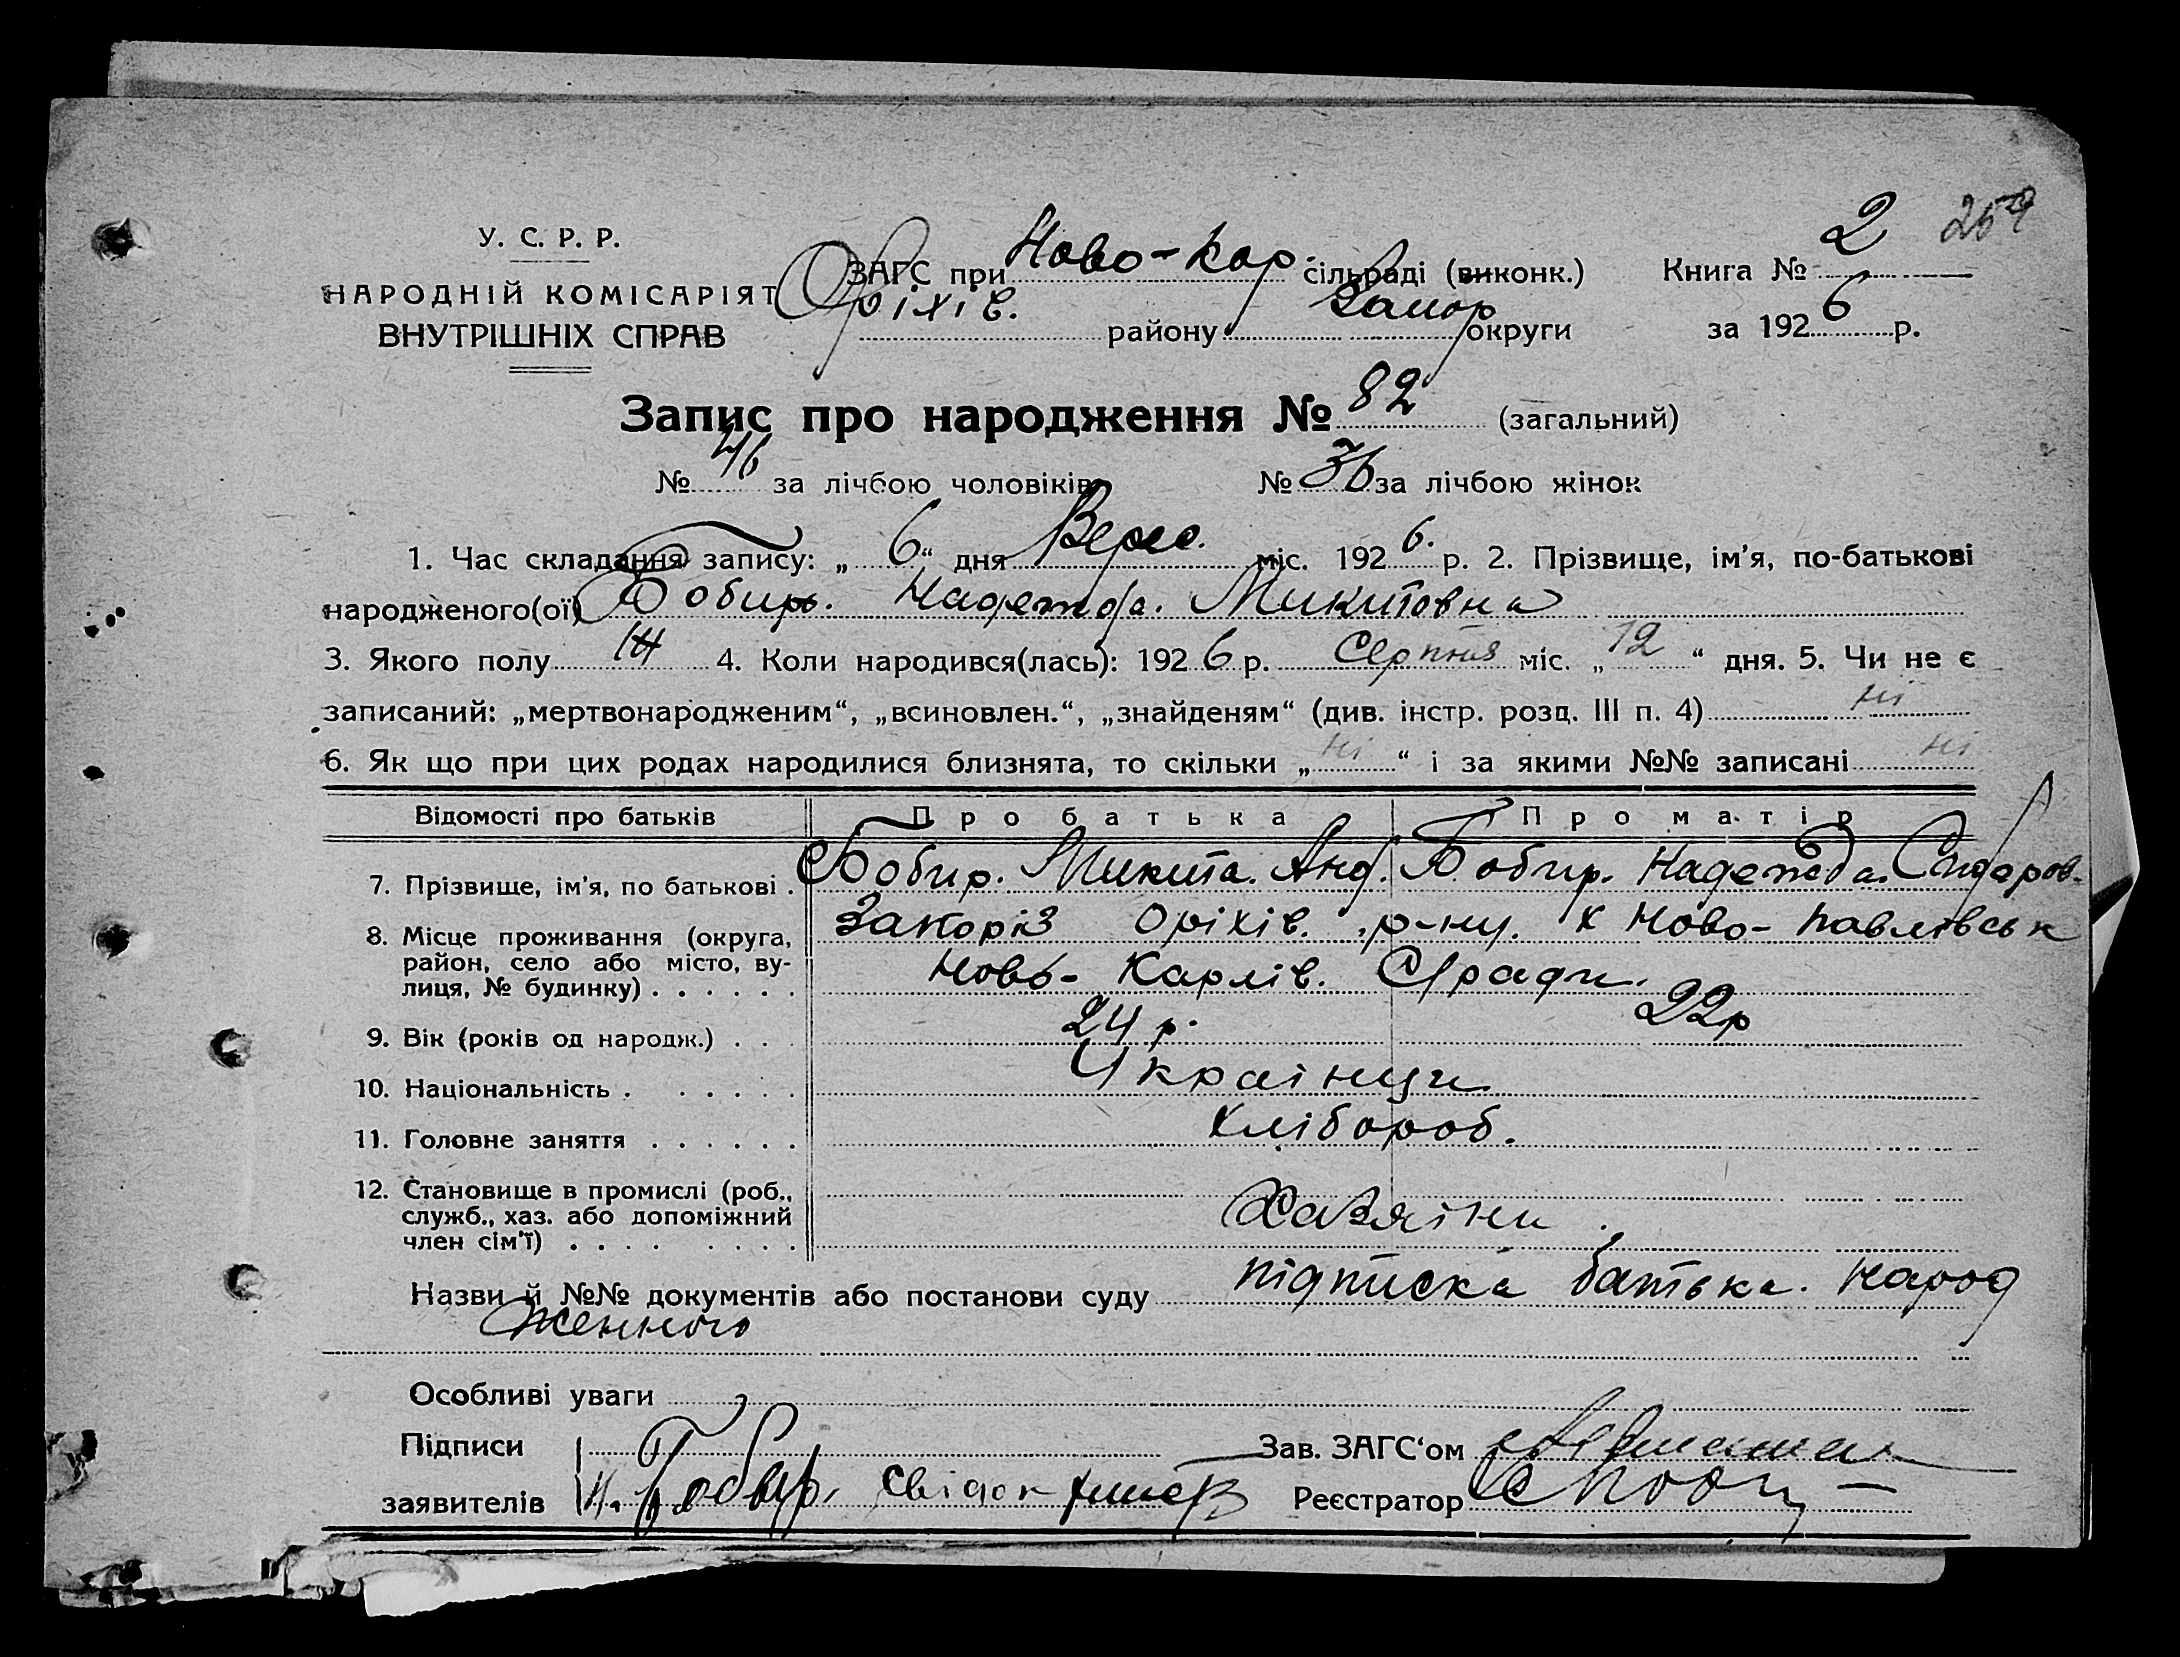 2 259
У. С. Р. Р.
ЗАГС при Ново-Кар. сільраді (виконк.) Книга №
НАРОДНІЙ КОМІСАРІЯТ
Оріхів. району Запор округи за 1926 р.
ВНУТРІШНІХ СПРАВ
Запис про народження № 82 (загальний)
№ 46 за лічбою чоловіків № 36 за лічбою жінок
1. Час складання запису: „6“ дня Верес. міс. 1926. р. 2. Прізвище, ім’я, по-батькові
народженого(ої) Бобирь. Надежда. Микитовна
3. Якого полу 4. Коли народився(лась): 1926 р. Серпня міс. „12“ дня. 5. Чи не є
записаний: „мертвонародженим“, „всиновлен.“, „знайденям“ (див. інстр. розд. III п. 4) ні
6. Як що при цих родах народилися близнята, то скільки „ні“ і за якими №№ записані ні
Відомості про батьків Про батька Про матір
7. Прізвище, ім’я, по батькові . Бобир. Микита. Анд. Бобир. Надежда. Сидоров.
8. Місце проживання (округа, Запоріз Оріхів. р-ну. х Ново-Павлівськ
район, село або місто, ву-
лиця, № будинку) . . . . . . Ново-Карлів. С/ради.
9. Вік (років од народж.) . . . 24 р. 22р
10. Національність . . . . . . Українци
11. Головне заняття . . . . . . Хлібороб.
12. Становище в промислі (роб.,
служб., хаз. або допоміжний Хазяіни.
член сім’ї) . . . . . . . .
Назви й №№ документів або постанови суду підписка батька. народ
женного
Особливі уваги
Підписи Зав. ЗАГС‘ом
заявителів Н. Бобир. Свідок Реєстратор